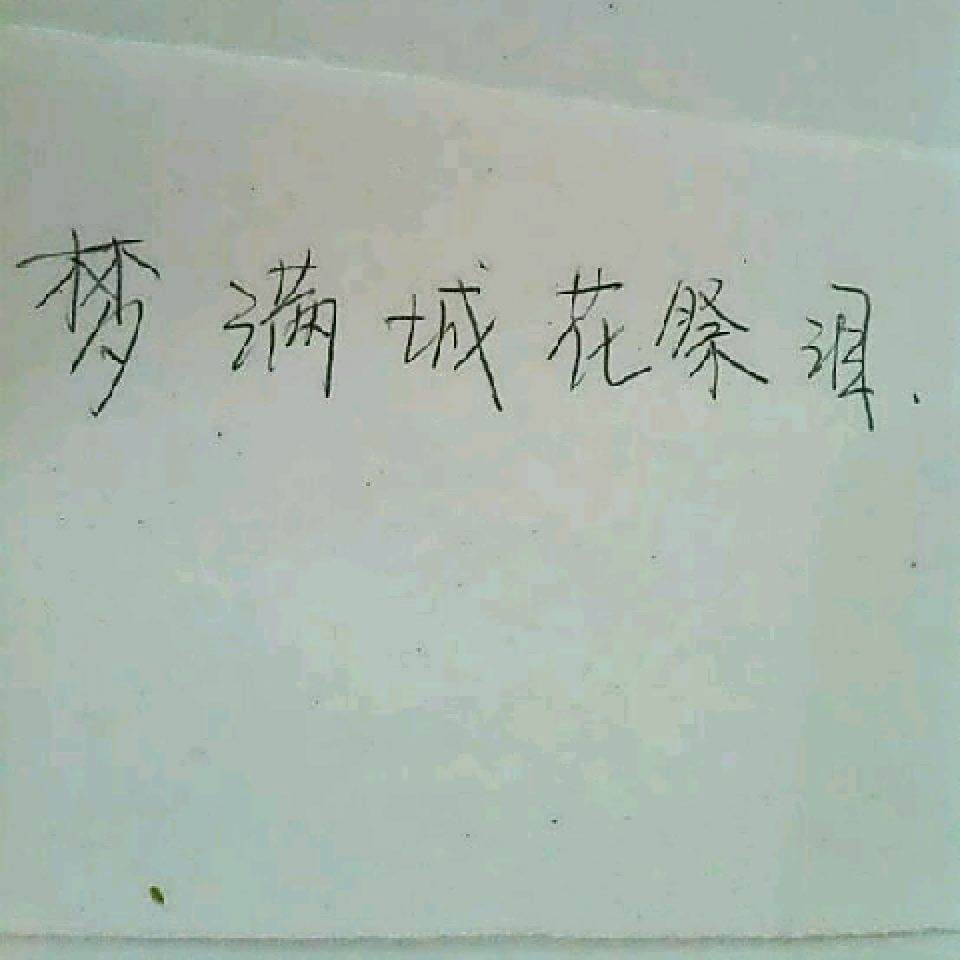 梦满城花祭泪.